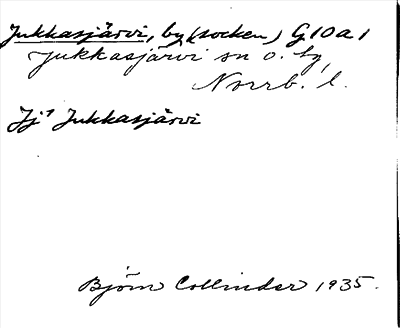 Jukkasjärvi, by (socken) G10a1
Jukkasjärvi sn o. by,
Norrb. l.
Jj¹ Jukkasjärvi
Björn Collinder 1935.